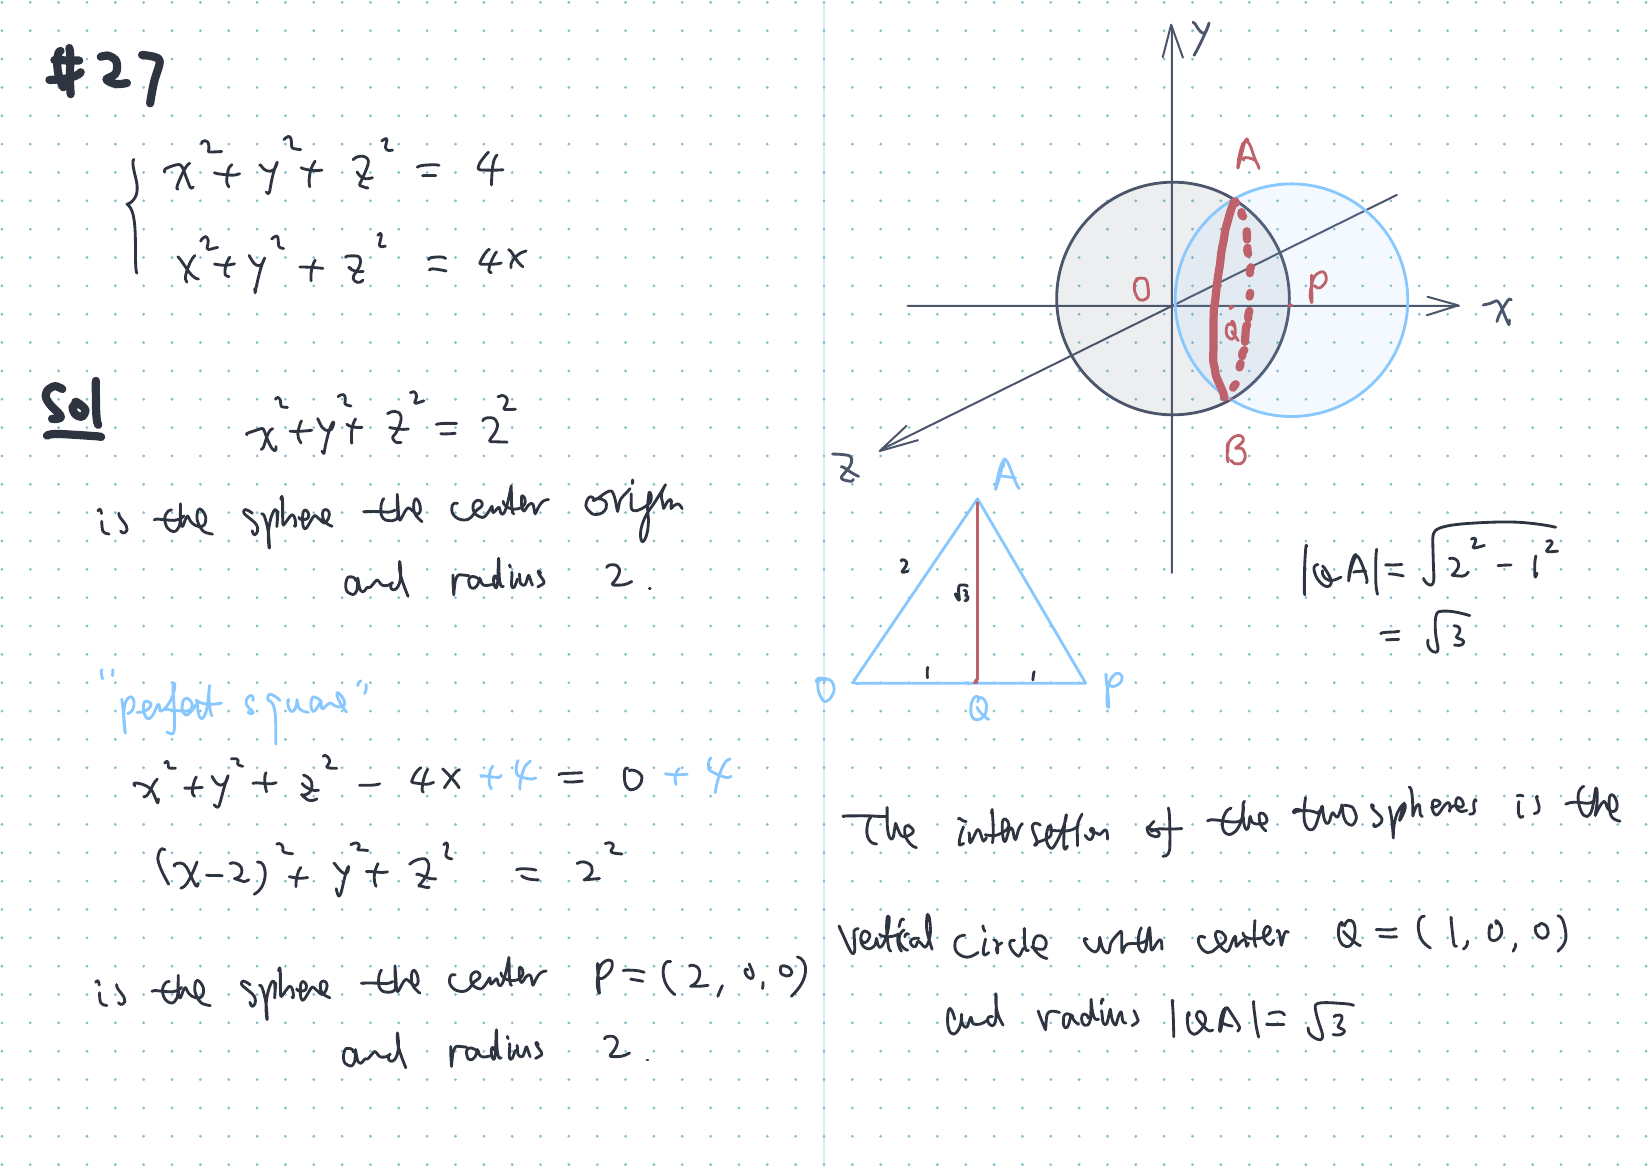 #27
x²+y²+z² = 4
x²+y²+z² = 4x
Sol
x²+y²+z² = 2²
is the sphere the center origin
and radius 2.
"perfect square"
x²+y²+z² - 4x +4 = 0 + 4
(x-2)²+y²+z² = 2²
is the sphere the center P=(2,0,0)
and radius 2.
y
A
O
P
Q
x
B
z
A
2
√3
1
1
O
Q
P
|QA|=√2²-1²
= √3
The intersetion of the two spheres is the
vertical circle with center Q=(1,0,0)
and radius |QA|=√3